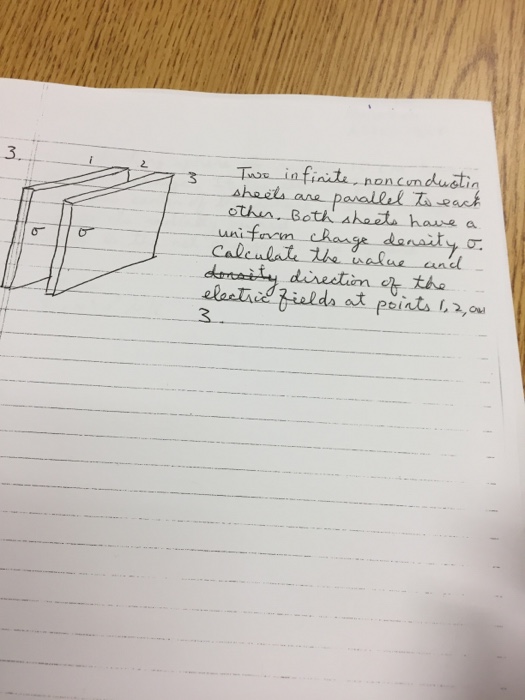 3.
1 2 3
σ σ
Two infinite, nonconductin
sheets are parallel to each
other. Both sheets have a
uniform charge density σ.
Calculate the value and
density direction of the
electric fields at points 1, 2, an
3.